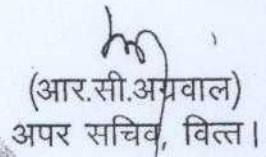 (आर.सी.अग्रवाल)
अपर सचिव, वित्त।